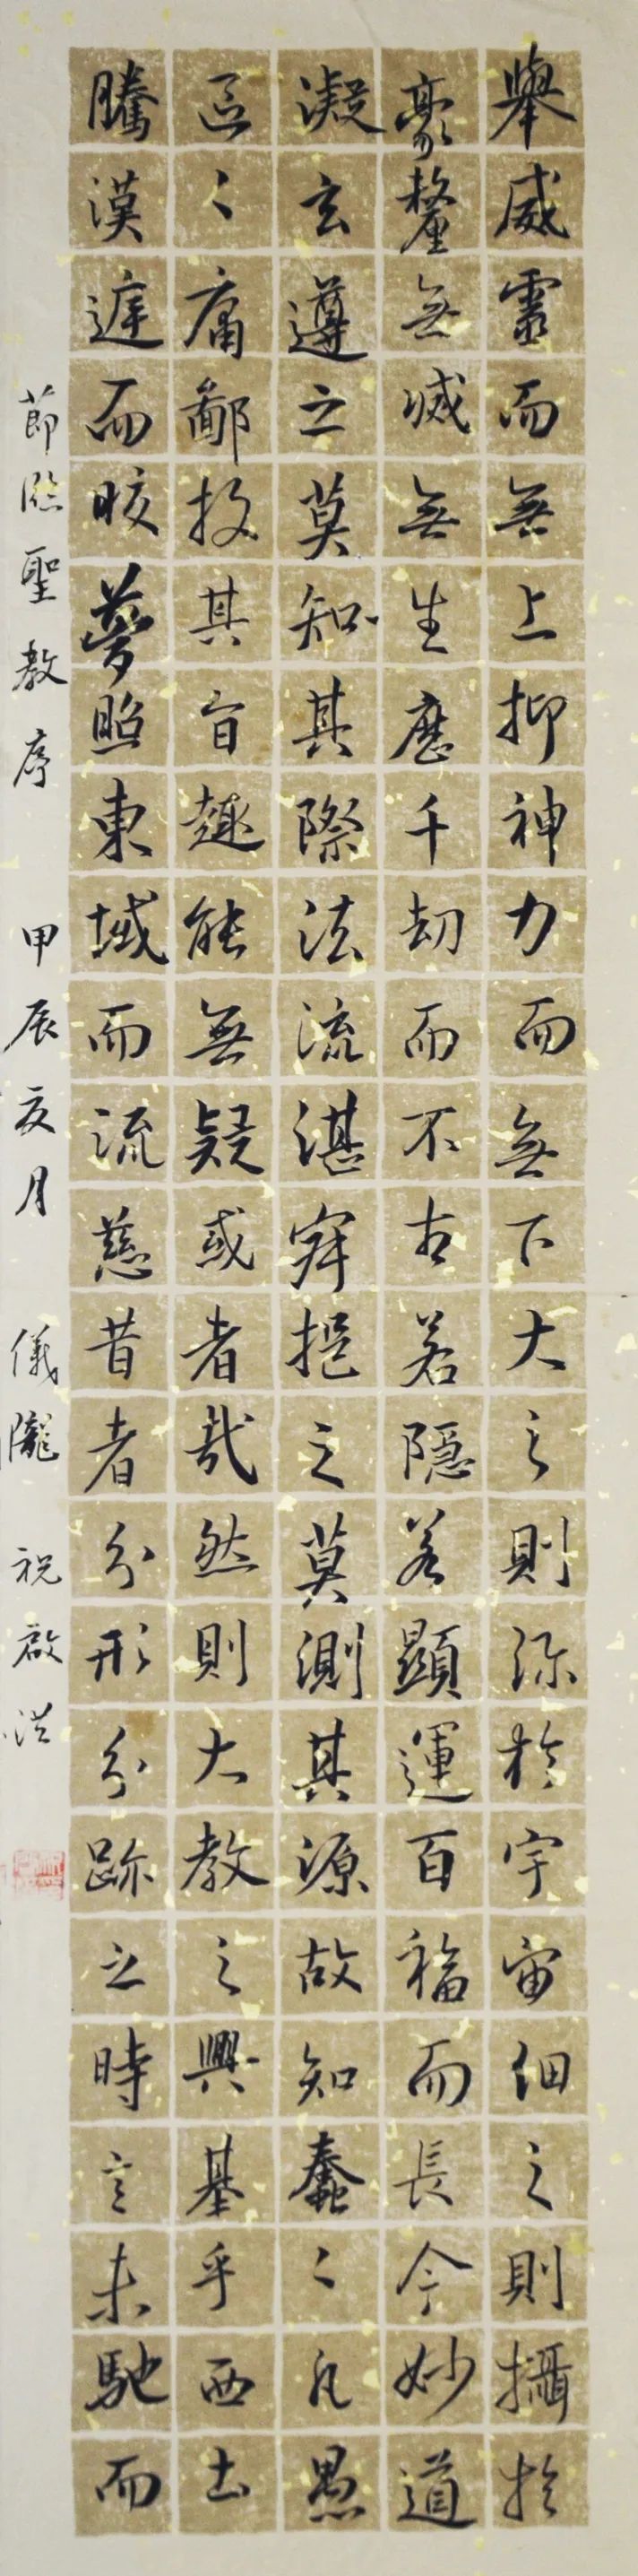 舉威靈而無上抑神力而無下大之則弥於宇宙細之則攝於
豪釐無滅無生歷千劫而不古若隱若顯運百福而長今妙道
凝玄遵之莫知其際法流湛寂挹之莫測其源故知蠢〻凡愚
區〻庸鄙投其旨趣能無疑或者哉然則大教之興基乎西土
騰漢庭而皎夢照東域而流慈昔者分形分跡之時言未馳而
節臨聖教序 甲辰亥月 儀隴 祝啟洪